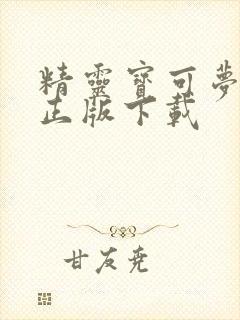 精靈寶可夢
正版下載
甘友堯